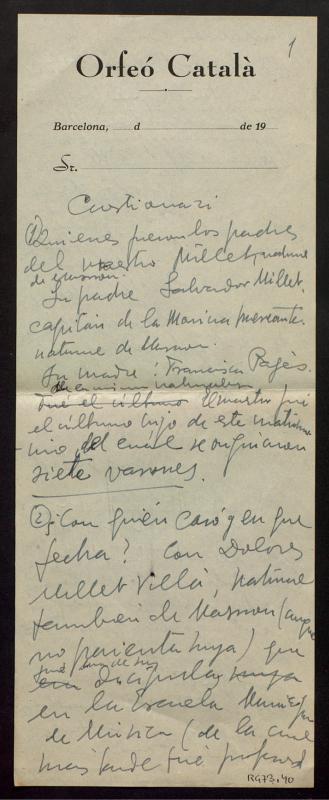 1
Orfeó Català
Barcelona, d de 19
Sr.
Cuestionari
(1) Quienes fueron los padres
del maestro Millet, nature
de Masnou.
Su padre Salvador Millet,
capitán de la Marina mercante
nature de Masnou.
Su madre: Francisca Pagès.
de
Fué el último El maestro fué
el último hijo de este matrimo-
nio, del cual se originaron
siete varones.
(2) ¿Con quién casó y en que
fecha? Con Dolores
Millet Villà, nature
tambien de Masnou (aunque
no parienta suya) que
fué una de sus
era discipula suya
en la Escuela Municipal
de Música (de la cual
mas tarde fué profesora
RG73.40